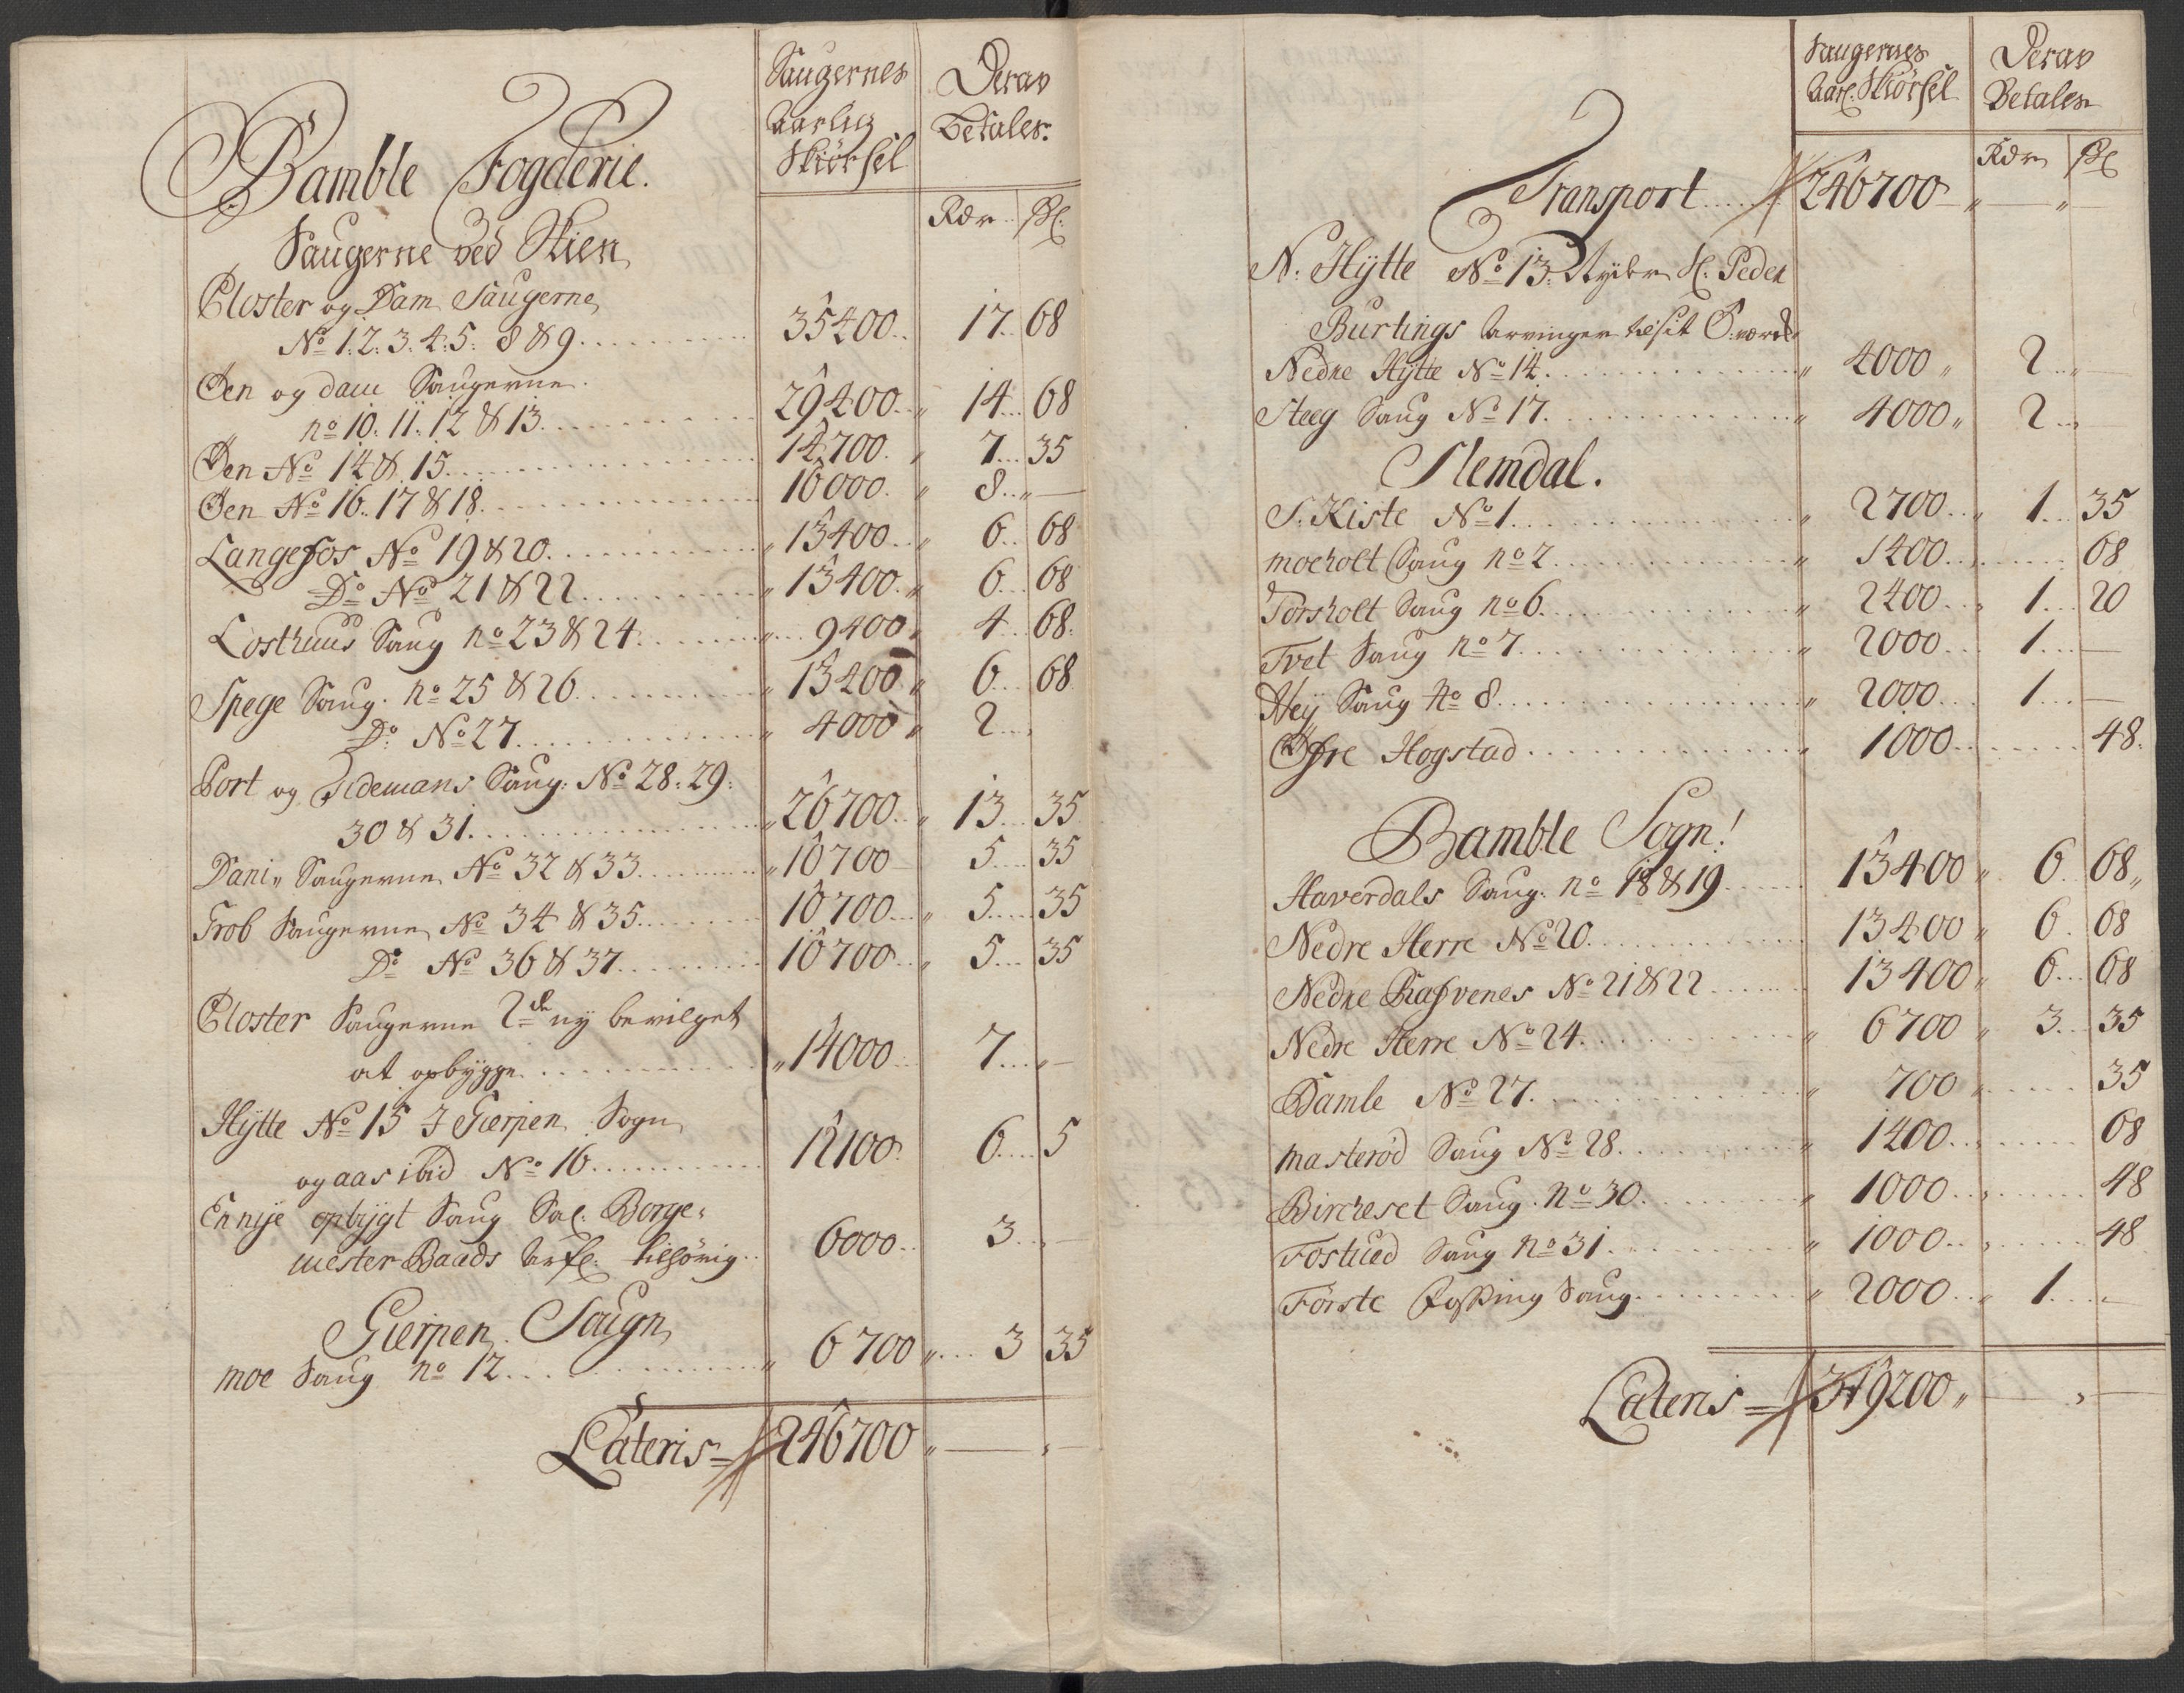 Saugernes Derav
aarlig Betales:
Skiörsel
Bamble Fogderie.
Rdr ß:
Saugerne ved Skien
Closter og Dam Saugerne
No 1. 2. 3. 4. 5. 8 & 9. 35400. 17. 68
Den og dam Saugerne.
no 10. 11. 12 & 13. 29400. 14. 68
Den No 14 & 15. 14700. 7. 35
Den No 16. 17 & 18. 16000. 8. —
Langefos No 19 & 20. 13400. 6. 68
Do No 21 & 22. 13400. 6. 68
Losthuus Saug no 23 & 24. 9400 4. 68.
Spege Saug. no 25 & 26. 13400 6. 68
Do No 27. 4000 2.
Port og Tidemans Saug: No 28: 29:
30 & 31. 26700. 13. 35
Dani„ Saugerne No 32 & 33. 10700 5. 35
Trob Saugerne No 34 & 35. 10700. 5. 35
Do No 36 & 37. 10700. 5. 35
Closter Saugerne 2de ny bevilget
at opbygge. 14000. 7. —
Hÿtte No 15 J Gierpen Sogn
og aas ibid No 16. 12100. 6. 5
En nÿe opbÿgt Saug Sal: Borge„
mester Baads tilhörig. 6000. 3. —
Gierpen Saugn
moe Saug no 12. 6700 3 35
Lateris = 246700 —
Saugernes Derav
Aarl. Skiörsel Betales
Rdr ß
Transport 246700 —
N: Hÿtte No 13. H: Peder
Burtings arvinger
Nedre Hÿtte No 14. 4000 2. —
Steeg Saug No 17. 4000 2.
Slemdal.
S: Kiste No 1. 2700. 1. 35
moeholt Saug no 2. 1400. 68
Torsholt Saug no 6. 2400. 1. 20
Tvet Saug no 7. 2000. 1. —
Aeÿ Saug no 8. 2000. 1. —
Öfre Hogstad. 1000. 48.
Bamble Sogn!
Haverdals Saug: no 18 & 19. 13400 6. 68„
Nedre Herre No 20. 13400 6. 68
Nedre Rafvenes No 21 & 22. 13400 6. 68
Nedre Herre No 24. 6700 3. 35
Damle No 27. 700 35
masteröd Saug No 28. 1400. 68
Bircheset Saug. No 30. 1000. 48
Fostued Saug no 31. 1000. 48
Förste Saug. 2000. 1. —
Lateris = 319200 —